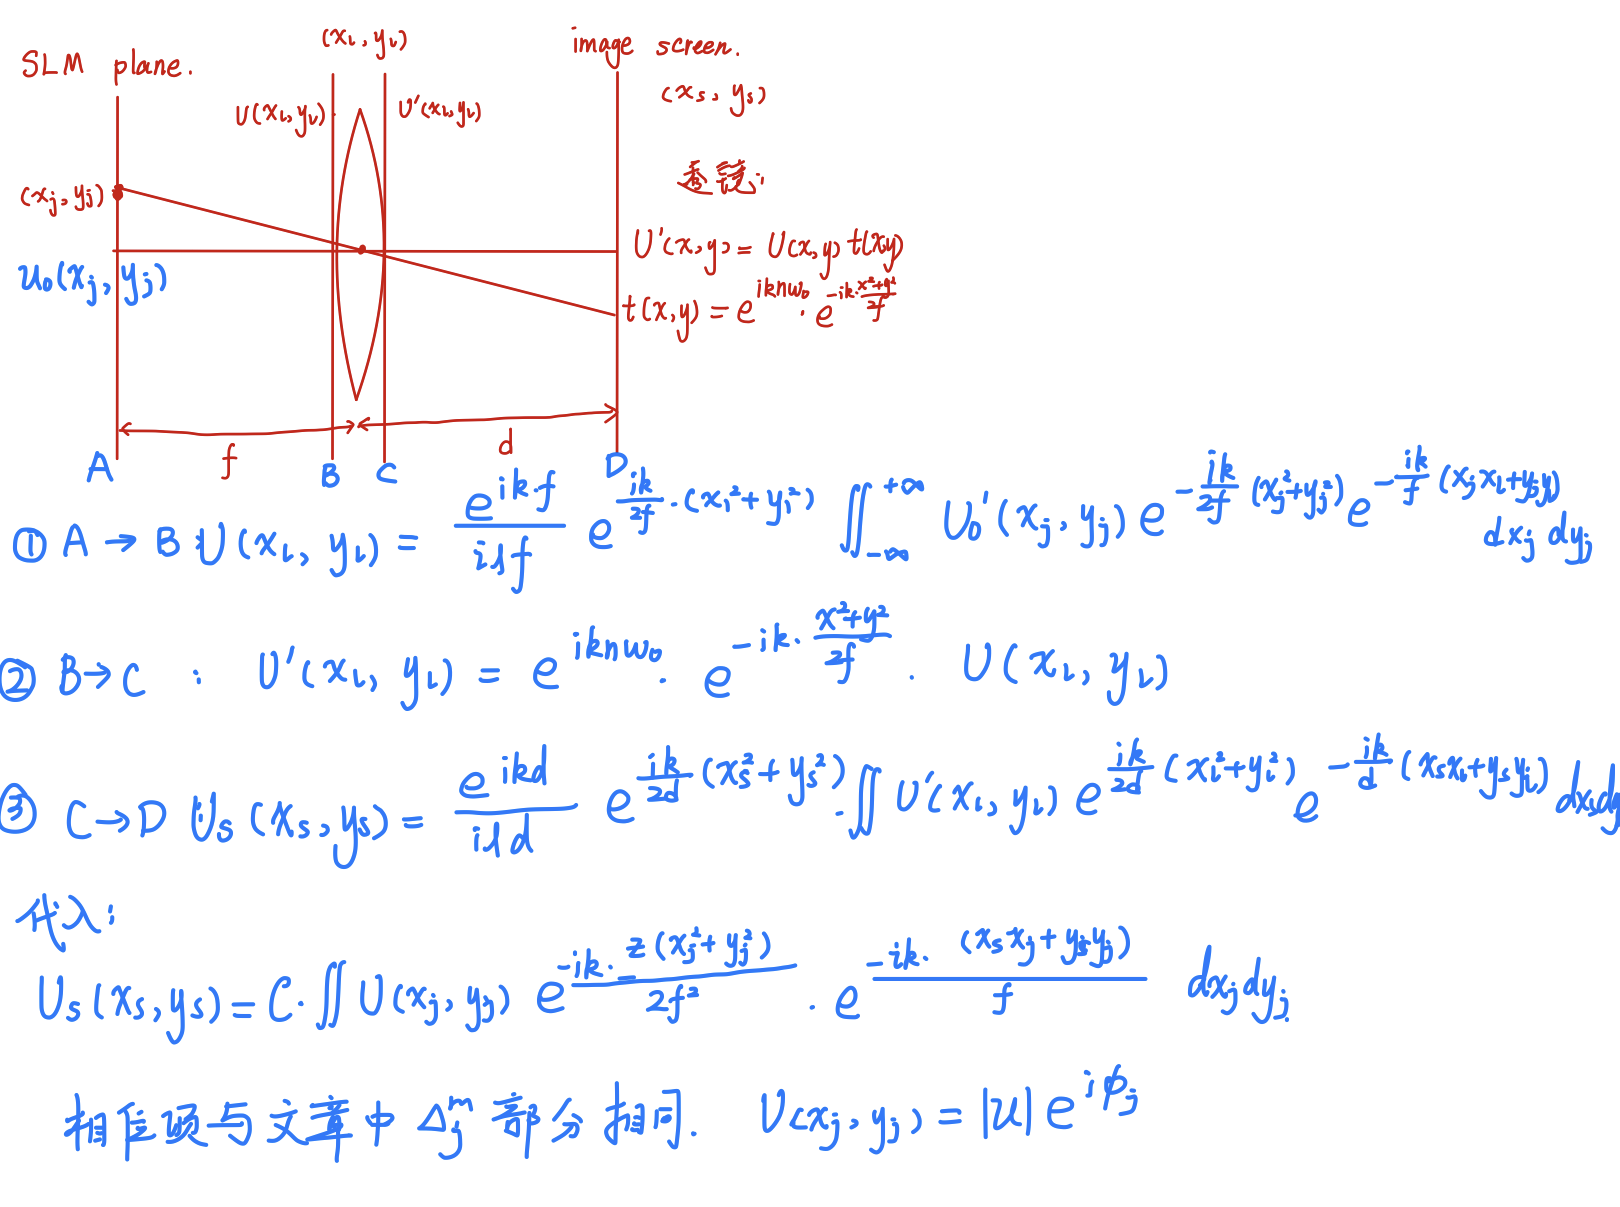 SLM plane.
(x_L, y_L)
image screen.
(x_s, y_s)
U(x_L, y_L)
U'(x_L, y_L)
(x_j, y_j)
透镜:
U'(x,y) = U(x,y) t(x,y)
u₀(x_j, y_j)
t(x,y) = e^{iknw₀} · e^{-ik·\frac{x²+y²}{2f}}
f
d
A
B
C
D
① A → B: U(x_L, y_L) = \frac{e^{ik·f}}{iλf} e^{\frac{ik}{2f}·(x_L²+y_L²)} ∬_{-∞}^{+∞} U₀'(x_j, y_j) e^{-\frac{ik}{2f}(x_j²+y_j²)} e^{-\frac{ik}{f}(x_j x_L+y_j y_L)} dx_j dy_j
② B→C : U'(x_L, y_L) = e^{iknw₀} · e^{-ik·\frac{x²+y²}{2f}} · U(x_L, y_L)
③ C→D U_s(x_s, y_s) = \frac{e^{ikd}}{iλd} e^{\frac{ik}{2d}(x_s²+y_s²)} · ∬ U'(x_L, y_L) e^{\frac{ik}{2d}(x_L²+y_L²)} e^{-\frac{ik}{d}(x_s x_L+y_s y_L)} dx_L dy
代入:
U_s(x_s, y_s) = C · ∬ U(x_j, y_j) e^{-ik·\frac{z(x_j²+y_j²)}{2f²}} · e^{-ik·\frac{(x_s x_j+y_s y_j)}{f}} dx_j dy_j.
相位项与文章中 Δ_j^m 部分相同. U(x_j, y_j) = |u| e^{iφ_j}